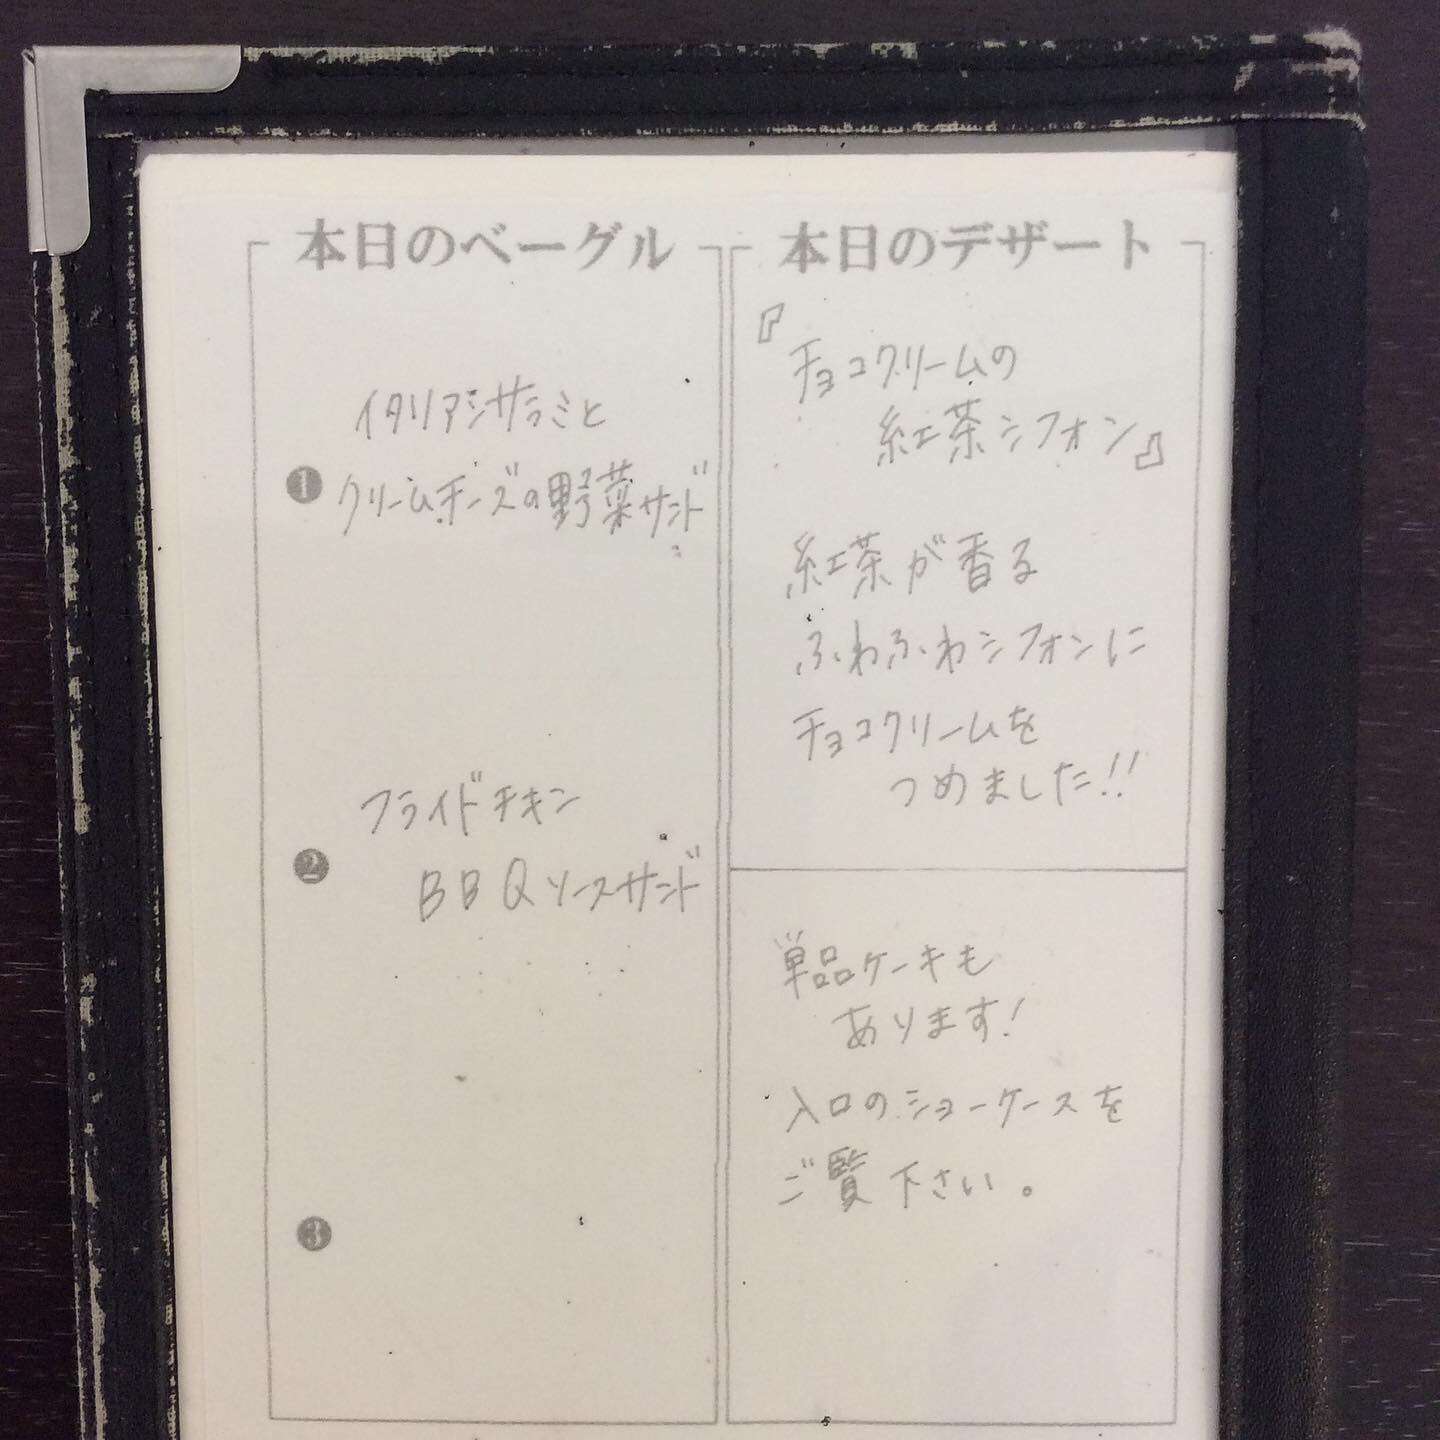 本日のベーグル
イタリアンサラミと
❶ クリームチーズの野菜サンド
フライドチキン
❷ BBQソースサンド
❸
本日のデザート
『チョコクリームの
紅茶シフォン』
紅茶が香る
ふわふわシフォンに
チョコクリームを
つめました!!
単品ケーキも
あります!
入口のショーケースを
ご覧下さい。